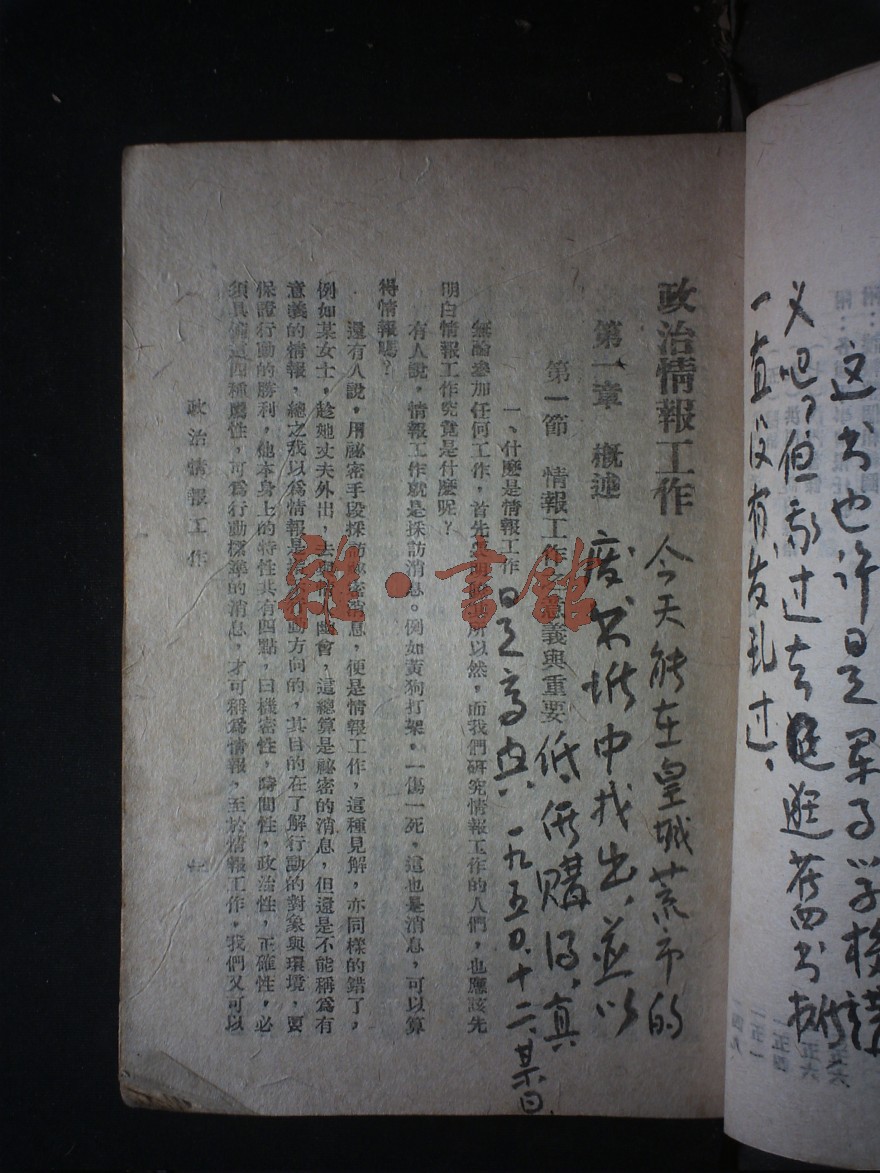 这书也许是军事学校讲
义吧？但我过去逛舊书摊
一直没有发现过、
政治情報工作
今天能在皇城荒市的
第一章 概述
废书堆中找出，並以
第一節 情報工作 意義與重要
低价購得，真
一、什麼是情報工作
是高兴、一九五〇、十二、廿日
無論參加任何工作，首先要明 所以然，而我們研究情報工作的人們，也應該先
明白情報工作究竟是什麼呢？
有人說，情報工作就是採訪消息。例如黃狗打架。一傷一死，這也是消息，可以算
得情報嗎？
還有人說，用祕密手段採訪祕密消息，便是情報工作，這種見解，亦同樣的錯了，
例如某女士，趁她丈夫外出，去與情人幽會，這總算是祕密的消息，但還是不能稱爲有
意義的情報，總之我以爲情報是指 動方向的，其目的在了解行動的對象與環境，要
保證行動的勝利，他本身上的特性共有四點，曰機密性，時間性，政治性，正確性，必
須具備這四種屬性，可爲行動標準的消息，才可稱爲情報，至於情報工作，我們又可以
政治情報工作
雜·書館